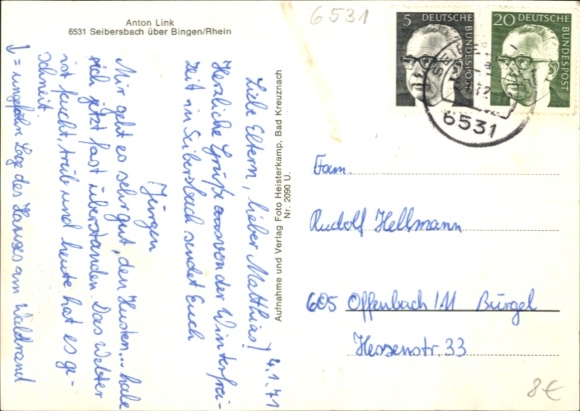 Anton Link
6531 Seibersbach über Bingen/Rhein
6531
5
DEUTSCHE
BUNDESPOST
20
DEUTSCHE
BUNDESPOST
6531
4.1.71
Liebe Eltern, lieber Matthias!
Herzliche Grüße aus von der Winterfrei-
zeit in Seibersbach sendet Euch
Jürgen
Mir geht es sehr gut, den Husten... habe
ich jetzt fast überstanden. Das Wetter
ist feucht, trüb und heute hat es ge-
schneit.
↓ = ungefähre Lage des Hauses am Waldrand
Aufnahme und Verlag Foto Heisterkamp, Bad Kreuznach
Nr. 2090 U.
Fam.
Rudolf Hellmann
605 Offenbach/M Bürgel
Hessenstr. 33
8€